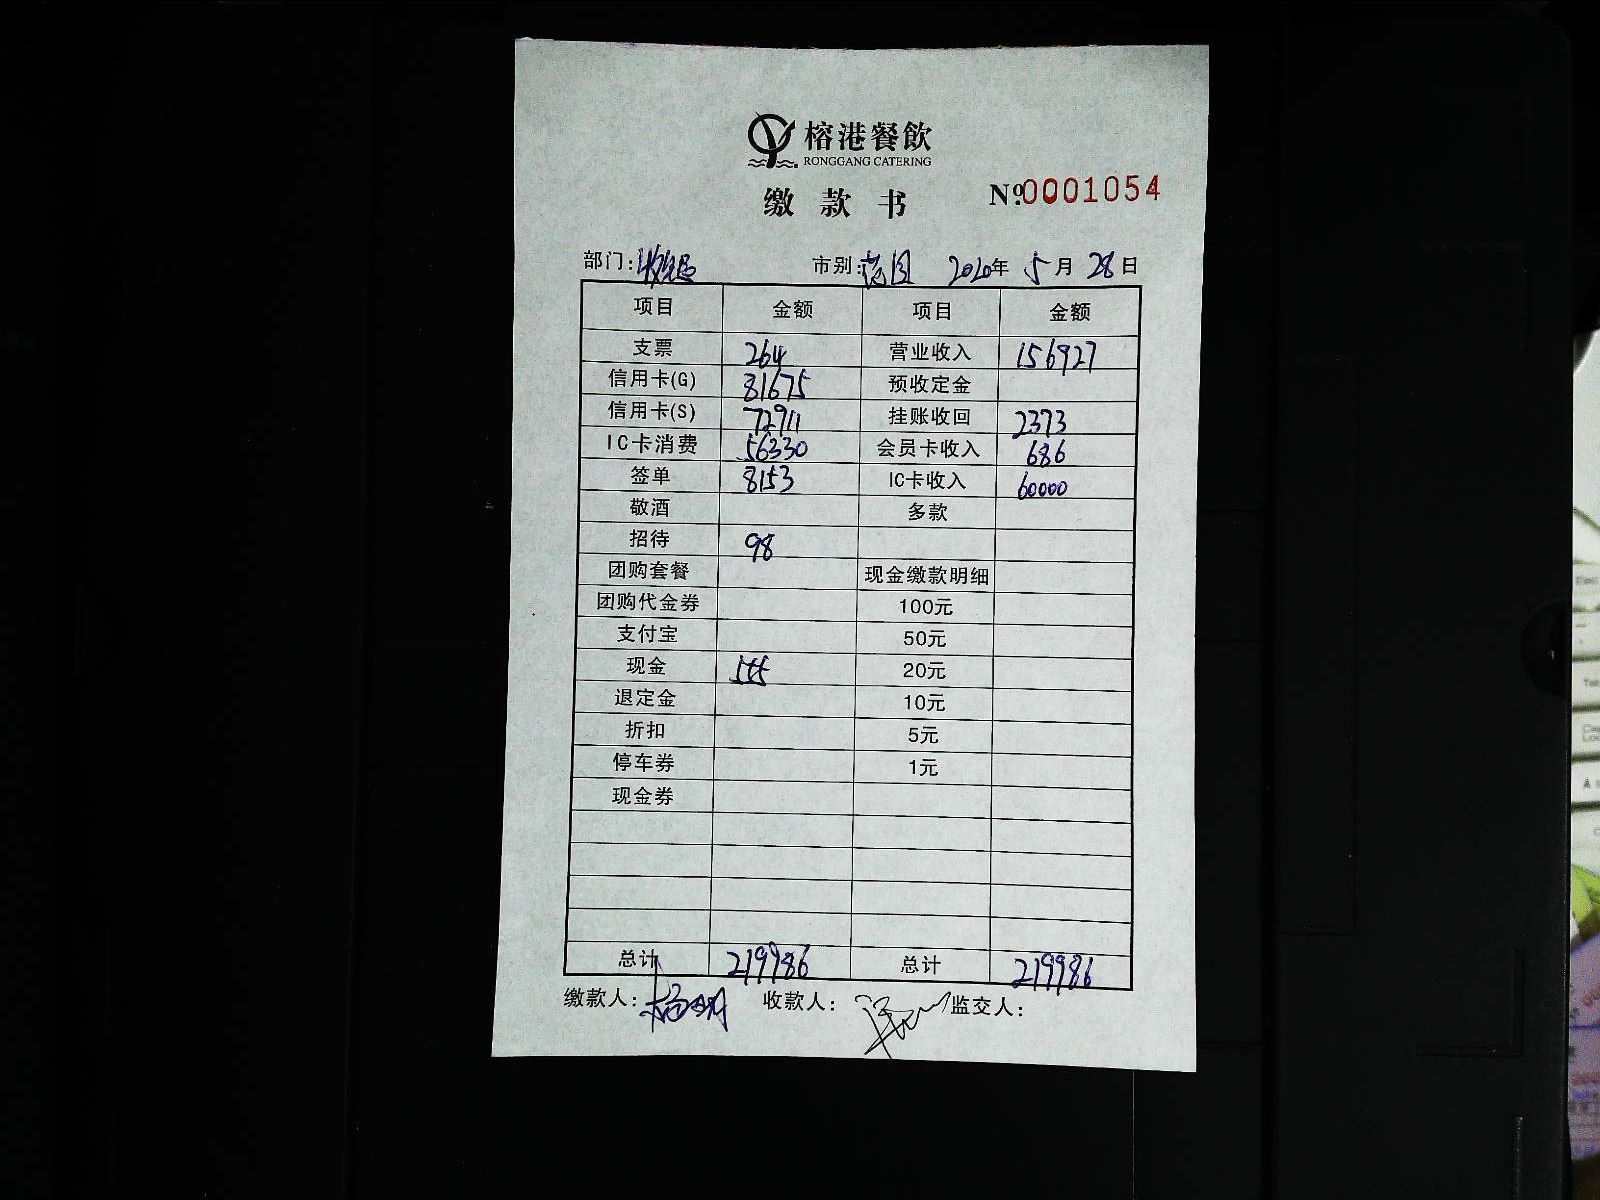 榕港餐飲
RONGGANG CATERING
缴款书 №0001054
部门: 市别: 2020年5月28日
项目 金额 项目 金额
支票 264 营业收入 156927
信用卡(G) 81675 预收定金
信用卡(S) 72911 挂账收回 2373
IC卡消费 56330 会员卡收入 686
签单 8153 IC卡收入 60000
敬酒 多款
招待 98
团购套餐 现金缴款明细
团购代金券 100元
支付宝 50元
现金 555 20元
退定金 10元
折扣 5元
停车券 1元
现金券
总计 219986 总计 219986
缴款人: 收款人: 监交人: